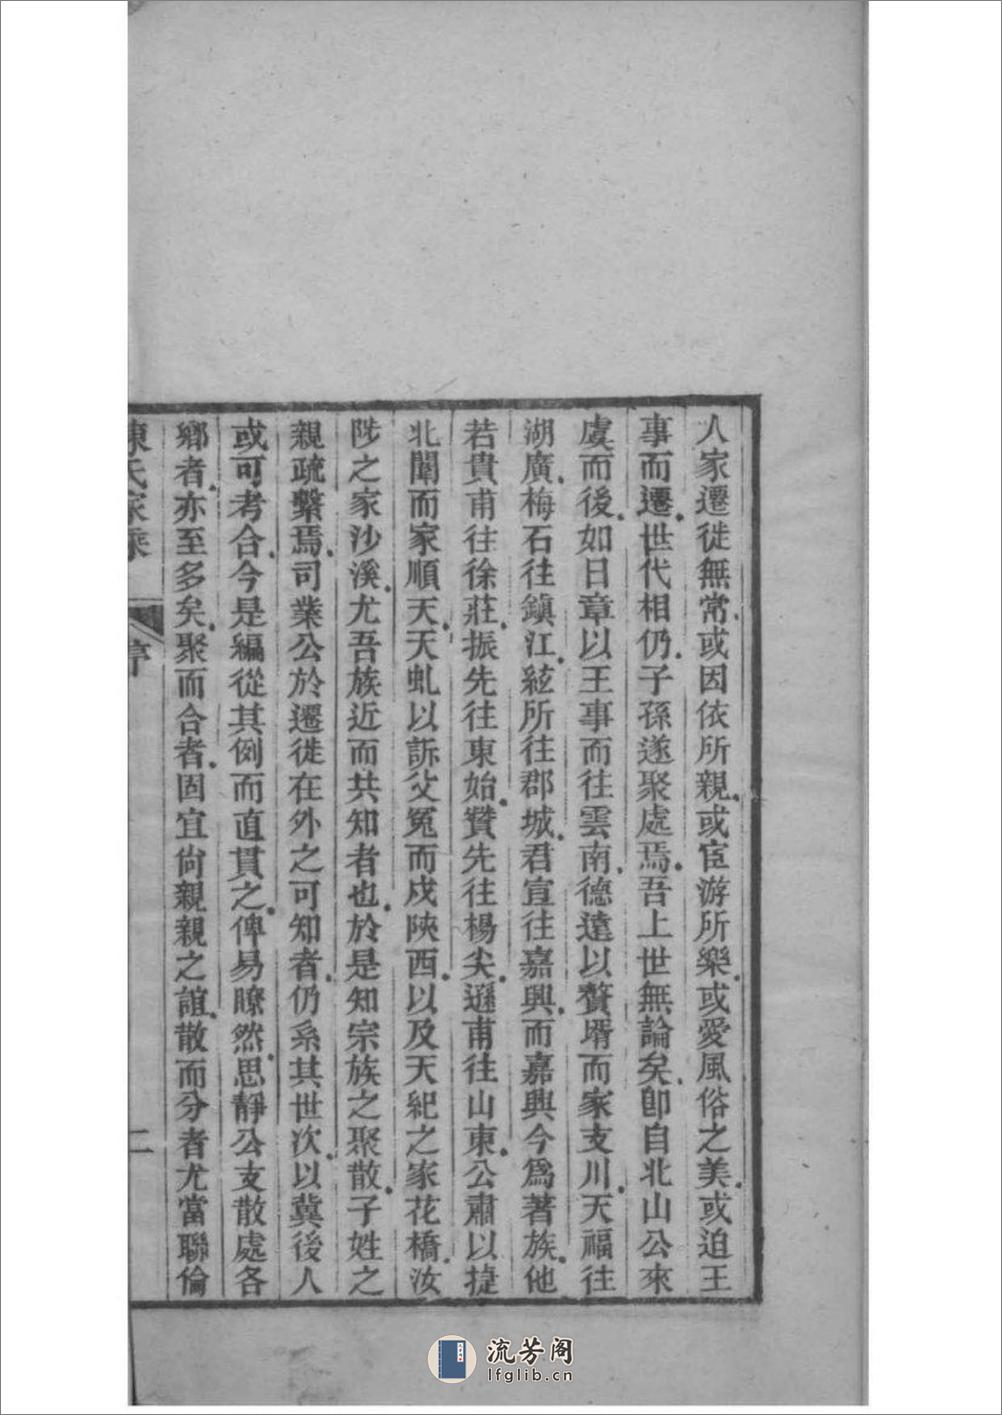 人家遷徙無常或因依所親或宦游所樂或愛風俗之美或迫王
事而遷世代相仍子孫遂聚處焉吾上世無論矣卽自北山公來
虞而後如日章以王事而往雲南德遠以贅壻而家支川天福往
湖廣梅石往鎮江絃所往郡城君宜往嘉興而嘉興今爲著族他
若貴甫往徐莊振先往東始贊先往楊尖遜甫往山東公肅以捷
北闈而家順天天虬以訴父冤而戍陝西以及天紀之家花橋汝
陟之家沙溪尤吾族近而共知者也於是知宗族之聚散子姓之
親疏繫焉司業公於遷徙在外之可知者仍系其世次以冀後人
或可考合今是編從其例而直貫之俾易瞭然思靜公支散處各
鄉者亦至多矣聚而合者固宜尙親親之誼散而分者尤當聯倫
陳氏家乘
序
二
流芳阁
lfglib.cn